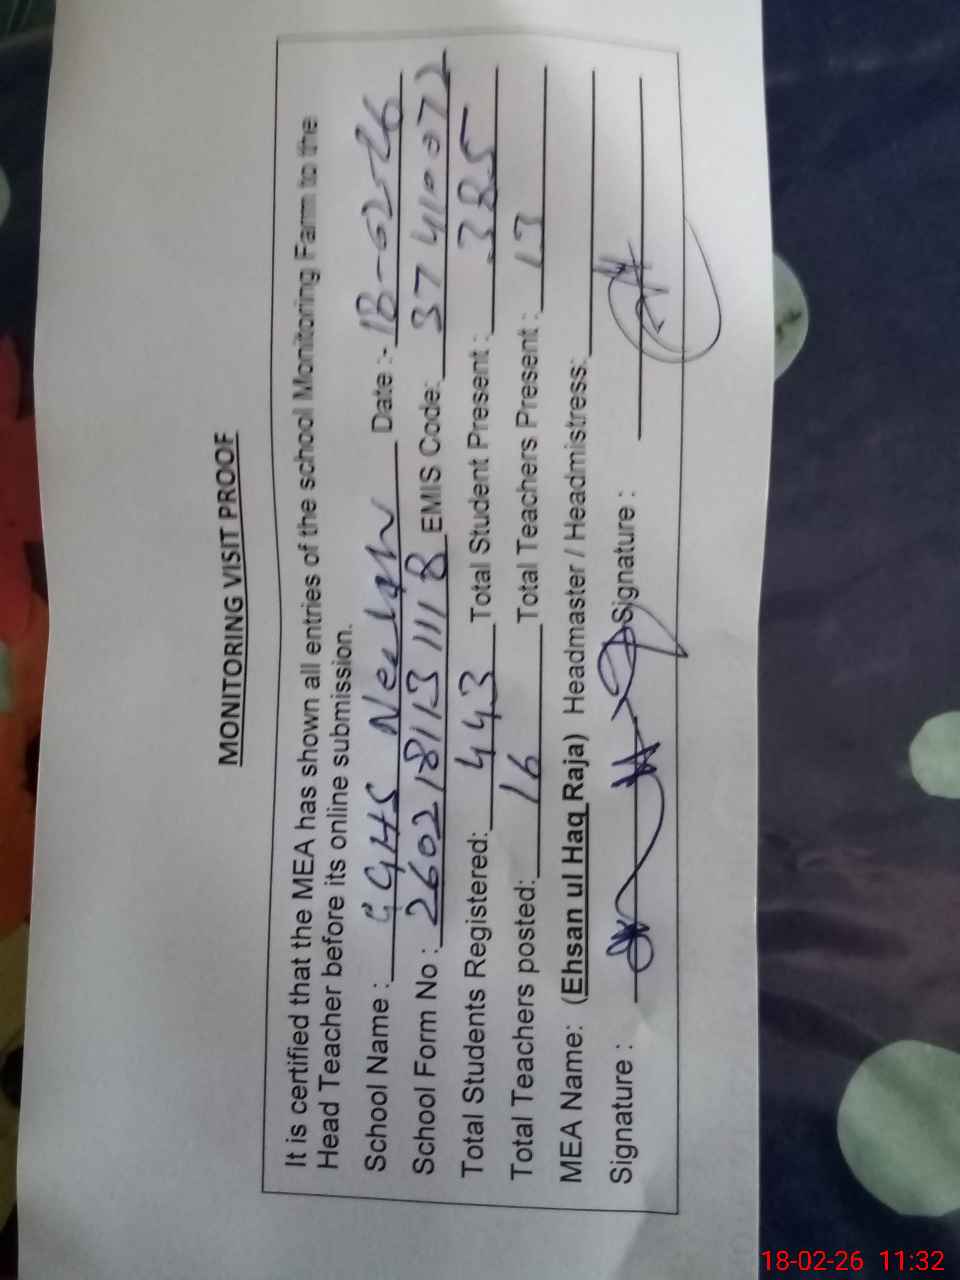 MONITORING VISIT PROOF
It is certified that the MEA has shown all entries of the school Monitoring Farm to the
Head Teacher before its online submission.
School Name : GGHS Date :- 18-02-26
School Form No : 26021811311118 EMIS Code: 37410072
Total Students Registered: 443 Total Student Present : 385
Total Teachers posted: 16 Total Teachers Present : 13
MEA Name: (Ehsan ul Haq Raja) Headmaster / Headmistress:
Signature : Signature :
18-02-26 11:32